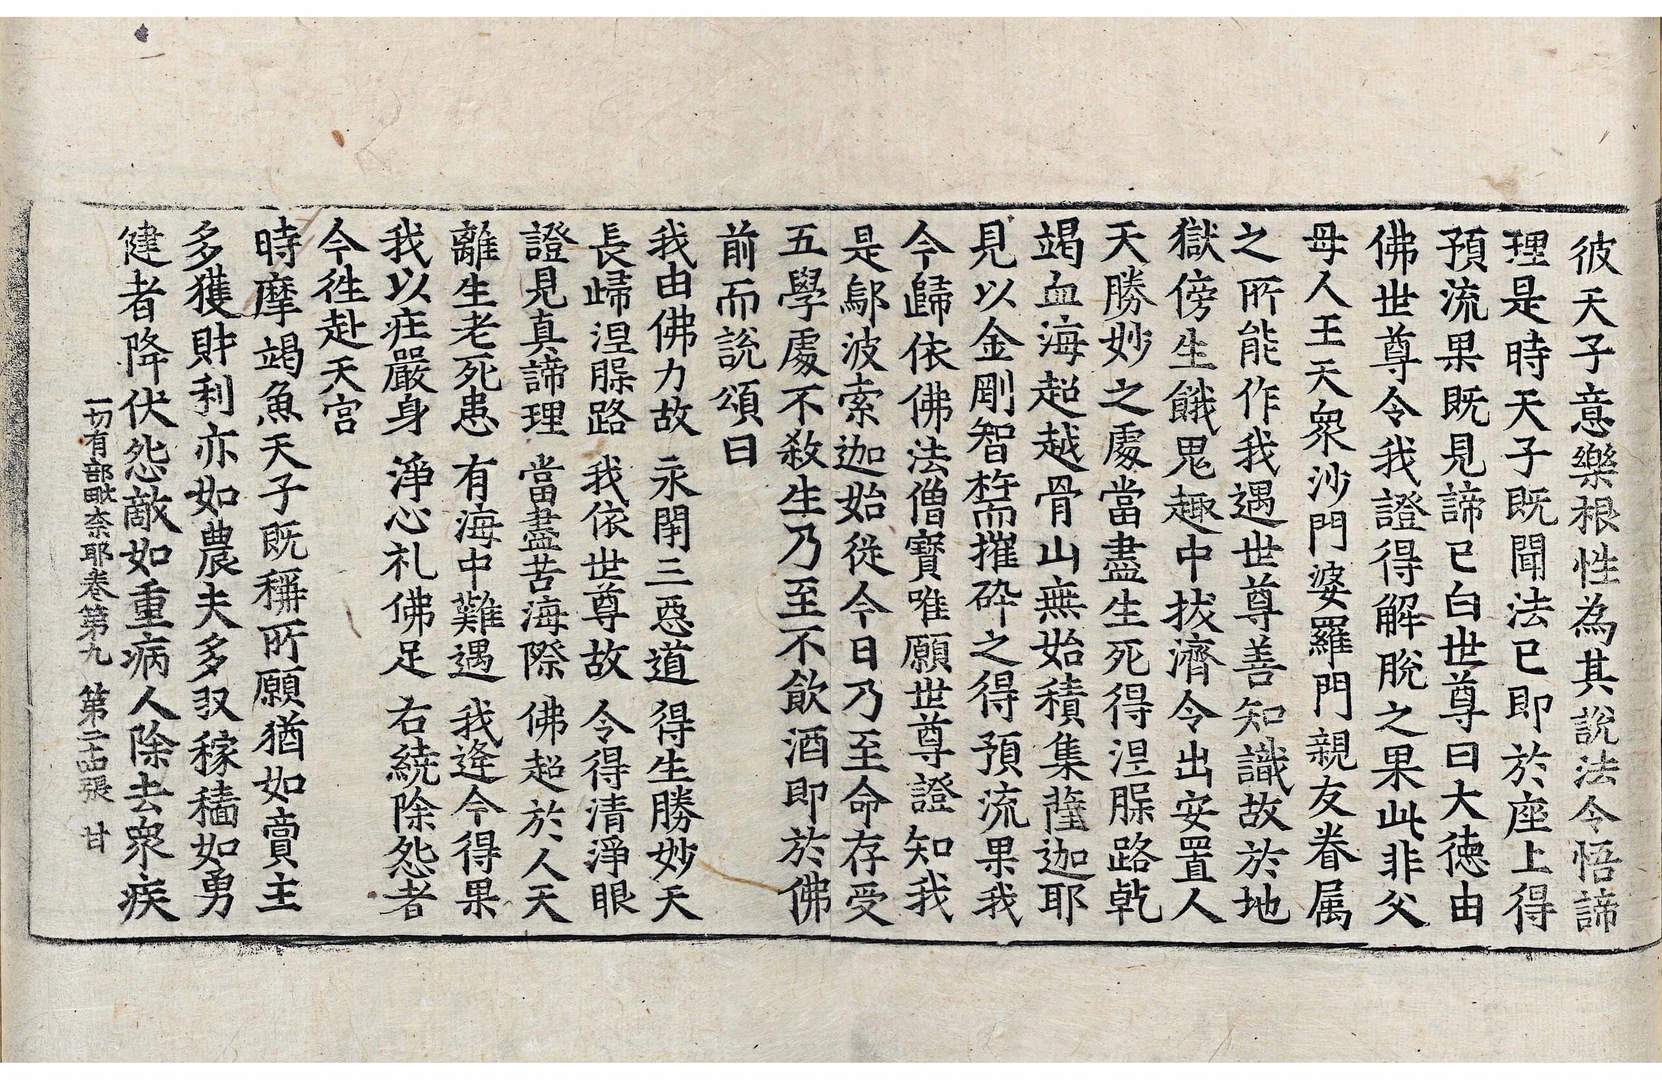 彼天子意樂根性為其說法令悟諦
理是時天子既聞法已即於座上得
預流果既見諦已白世尊曰大德由
佛世尊令我證得解脫之果此非父
母人王天衆沙門婆羅門親友眷属
之所能作我遇世尊善知識故於地
獄傍生餓鬼趣中拔濟令出安置人
天勝妙之處當盡生死得涅槃路乾
竭血海超越骨山無始積集薩迦耶
見以金剛智杵而摧碎之得預流果我
今歸依佛法僧寶唯願世尊證知我
是鄔波索迦始從今日乃至命存受
五學處不殺生乃至不飲酒即於佛
前而說頌曰
我由佛力故 永閇三惡道 得生勝妙天
長歸涅槃路 我依世尊故 今得清淨眼
證見真諦理 當盡苦海際 佛超於人天
離生老死患 有海中難遇 我逢今得果
我以莊嚴身 淨心礼佛足 右繞除怨者
今往赴天宮
時摩竭魚天子既稱所願猶如賣主
多獲財利亦如農夫多収稼穡如勇
健者降伏怨敵如重病人除去衆疾
一切有部毗奈耶卷第九 第二十四張 甘